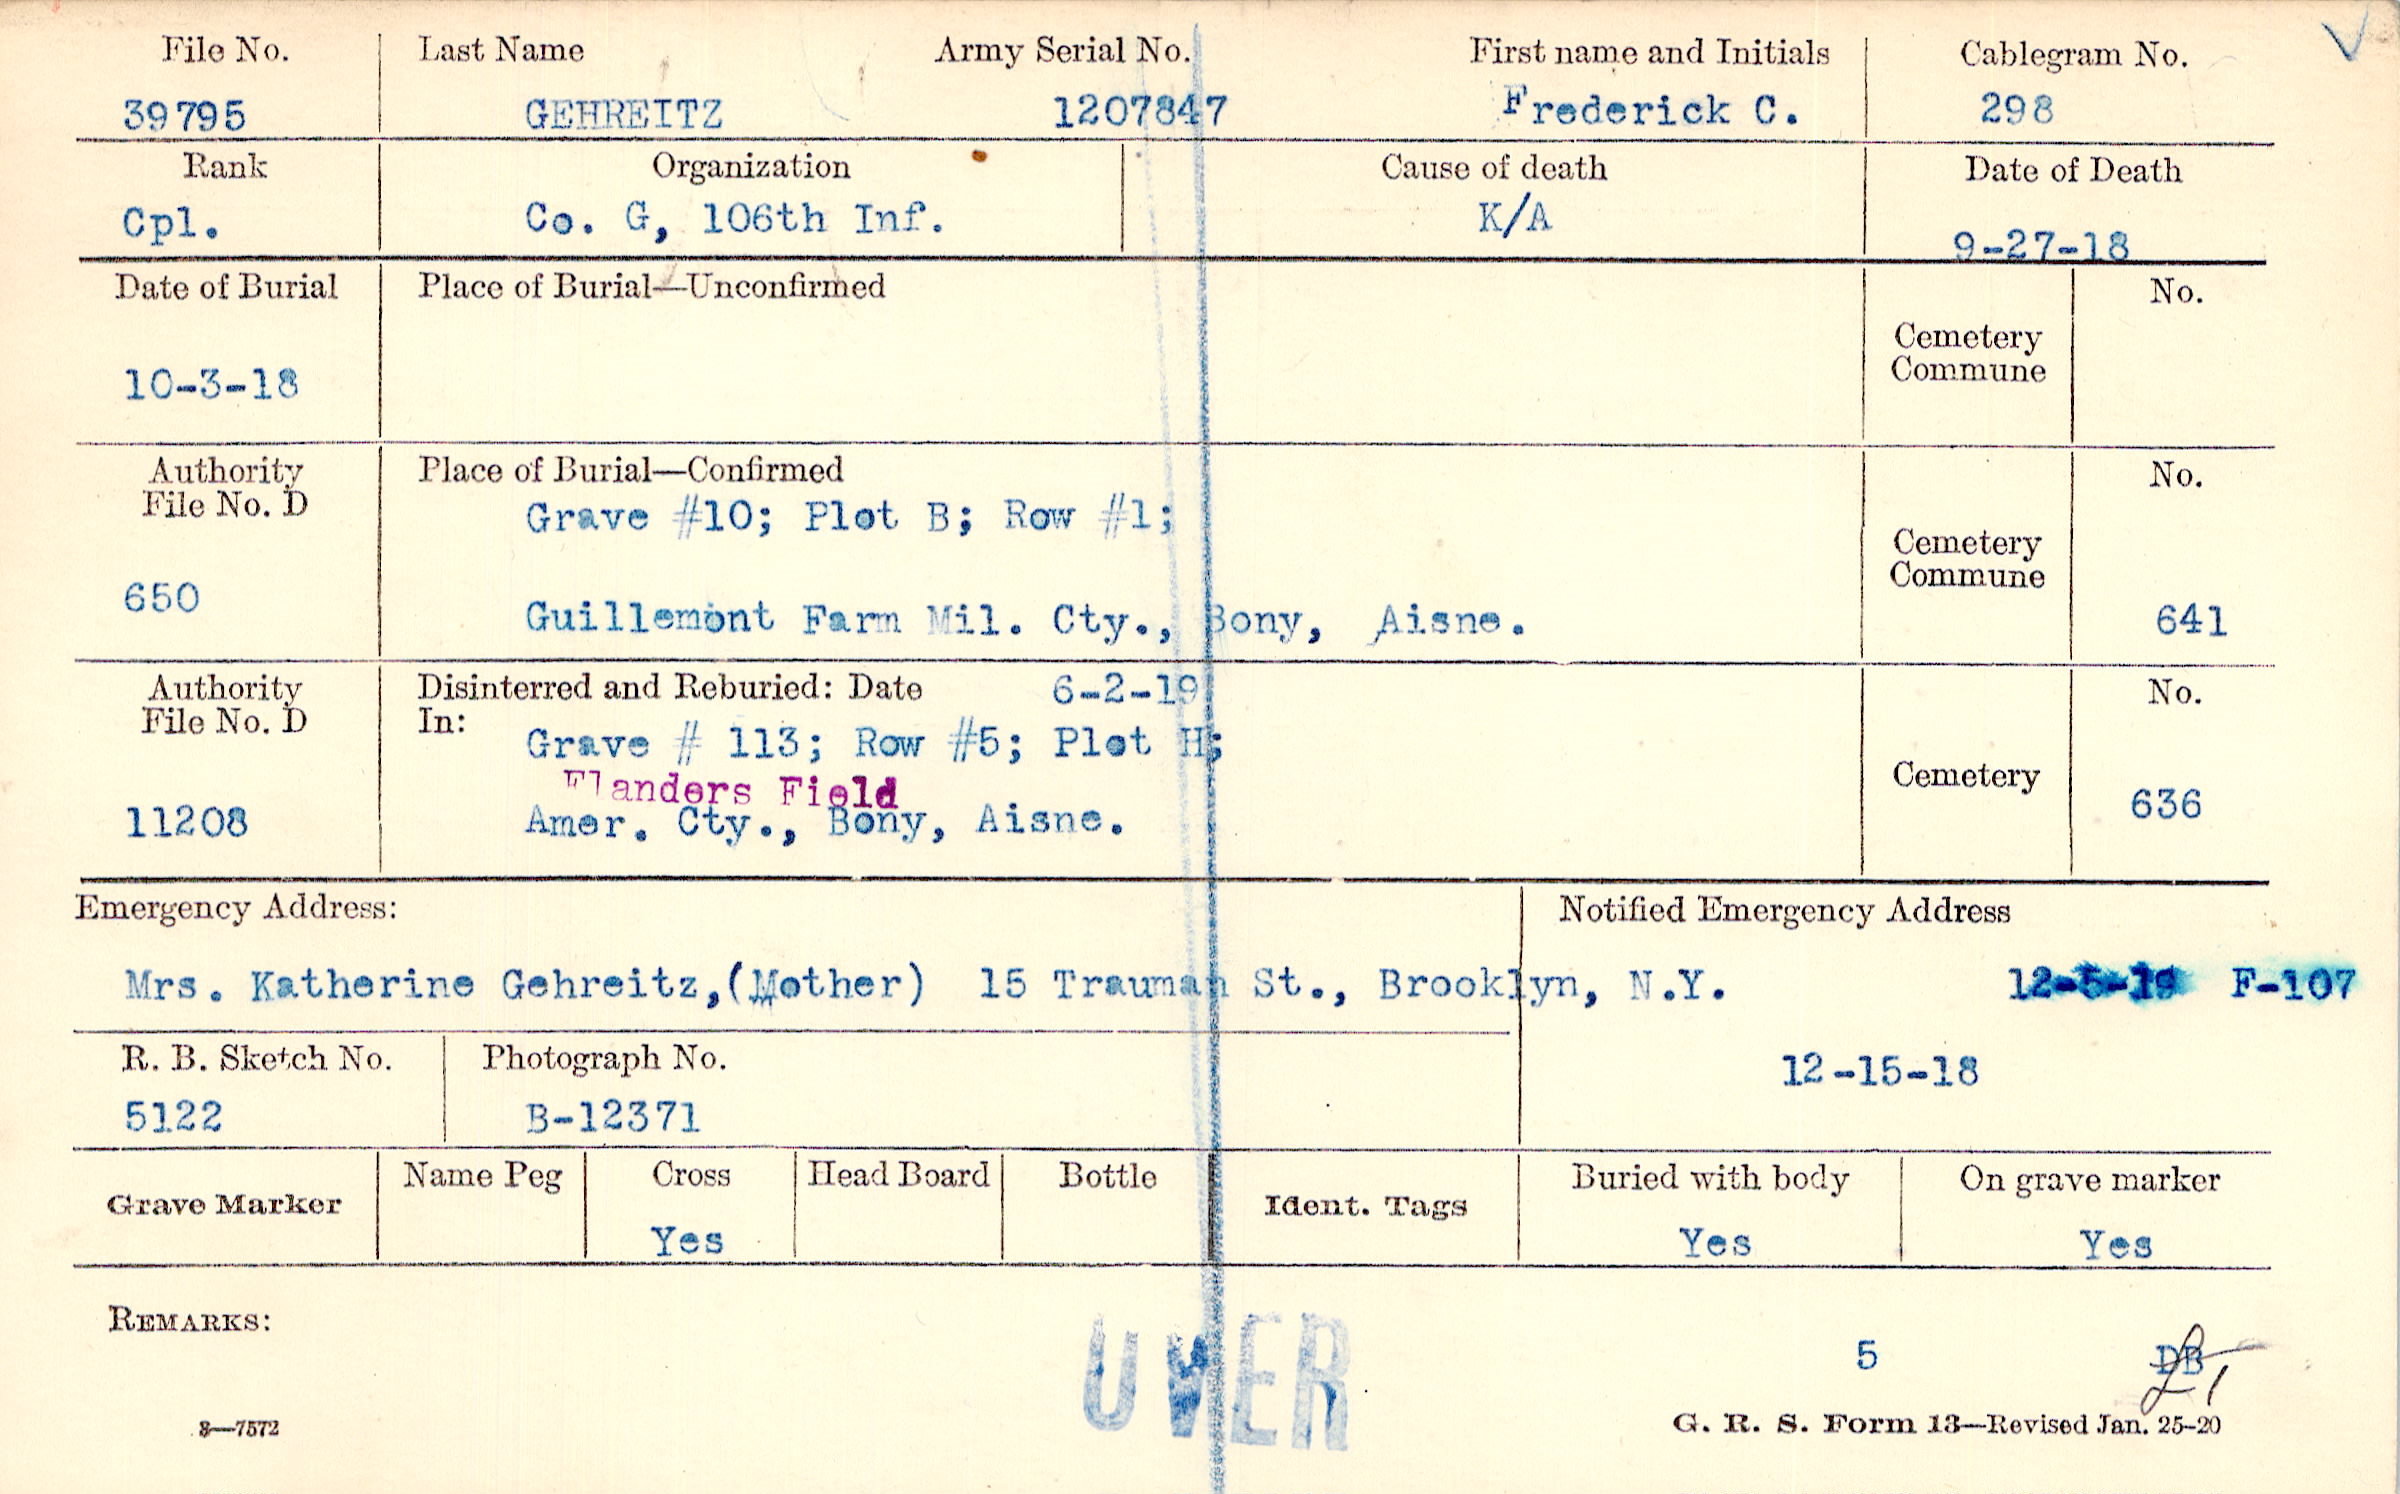 File No. Last Name Army Serial No. First name and Initials Cablegram No.
39795 GEHREITZ 1207847 Frederick C. 298
Rank Organization Cause of death Date of Death
Cpl. Co. G, 106th Inf. K/A 9-27-18
Date of Burial Place of Burial—Unconfirmed No.
Cemetery
Commune
10-3-18
Authority Place of Burial—Confirmed No.
File No. D
Grave #10; Plot B; Row #1;
Cemetery
Commune
650 Guillemont Farm Mil. Cty., Bony, Aisne. 641
Authority Disinterred and Reburied: Date 6-2-19 No.
File No. D In:
Grave # 113; Row #5; Plot H;
Flanders Field Cemetery
11208 Amer. Cty., Bony, Aisne. 636
Emergency Address: Notified Emergency Address
Mrs. Katherine Gehreitz,(Mother) 15 Trauman St., Brooklyn, N.Y. 12-5-19 F-107
R. B. Sketch No. Photograph No. 12-15-18
5122 B-12371
Grave Marker Name Peg Cross Head Board Bottle Ident. Tags Buried with body On grave marker
Yes Yes Yes
REMARKS:
OVER
5 DB
8—7572 G. R. S. Form 13—Revised Jan. 25-20